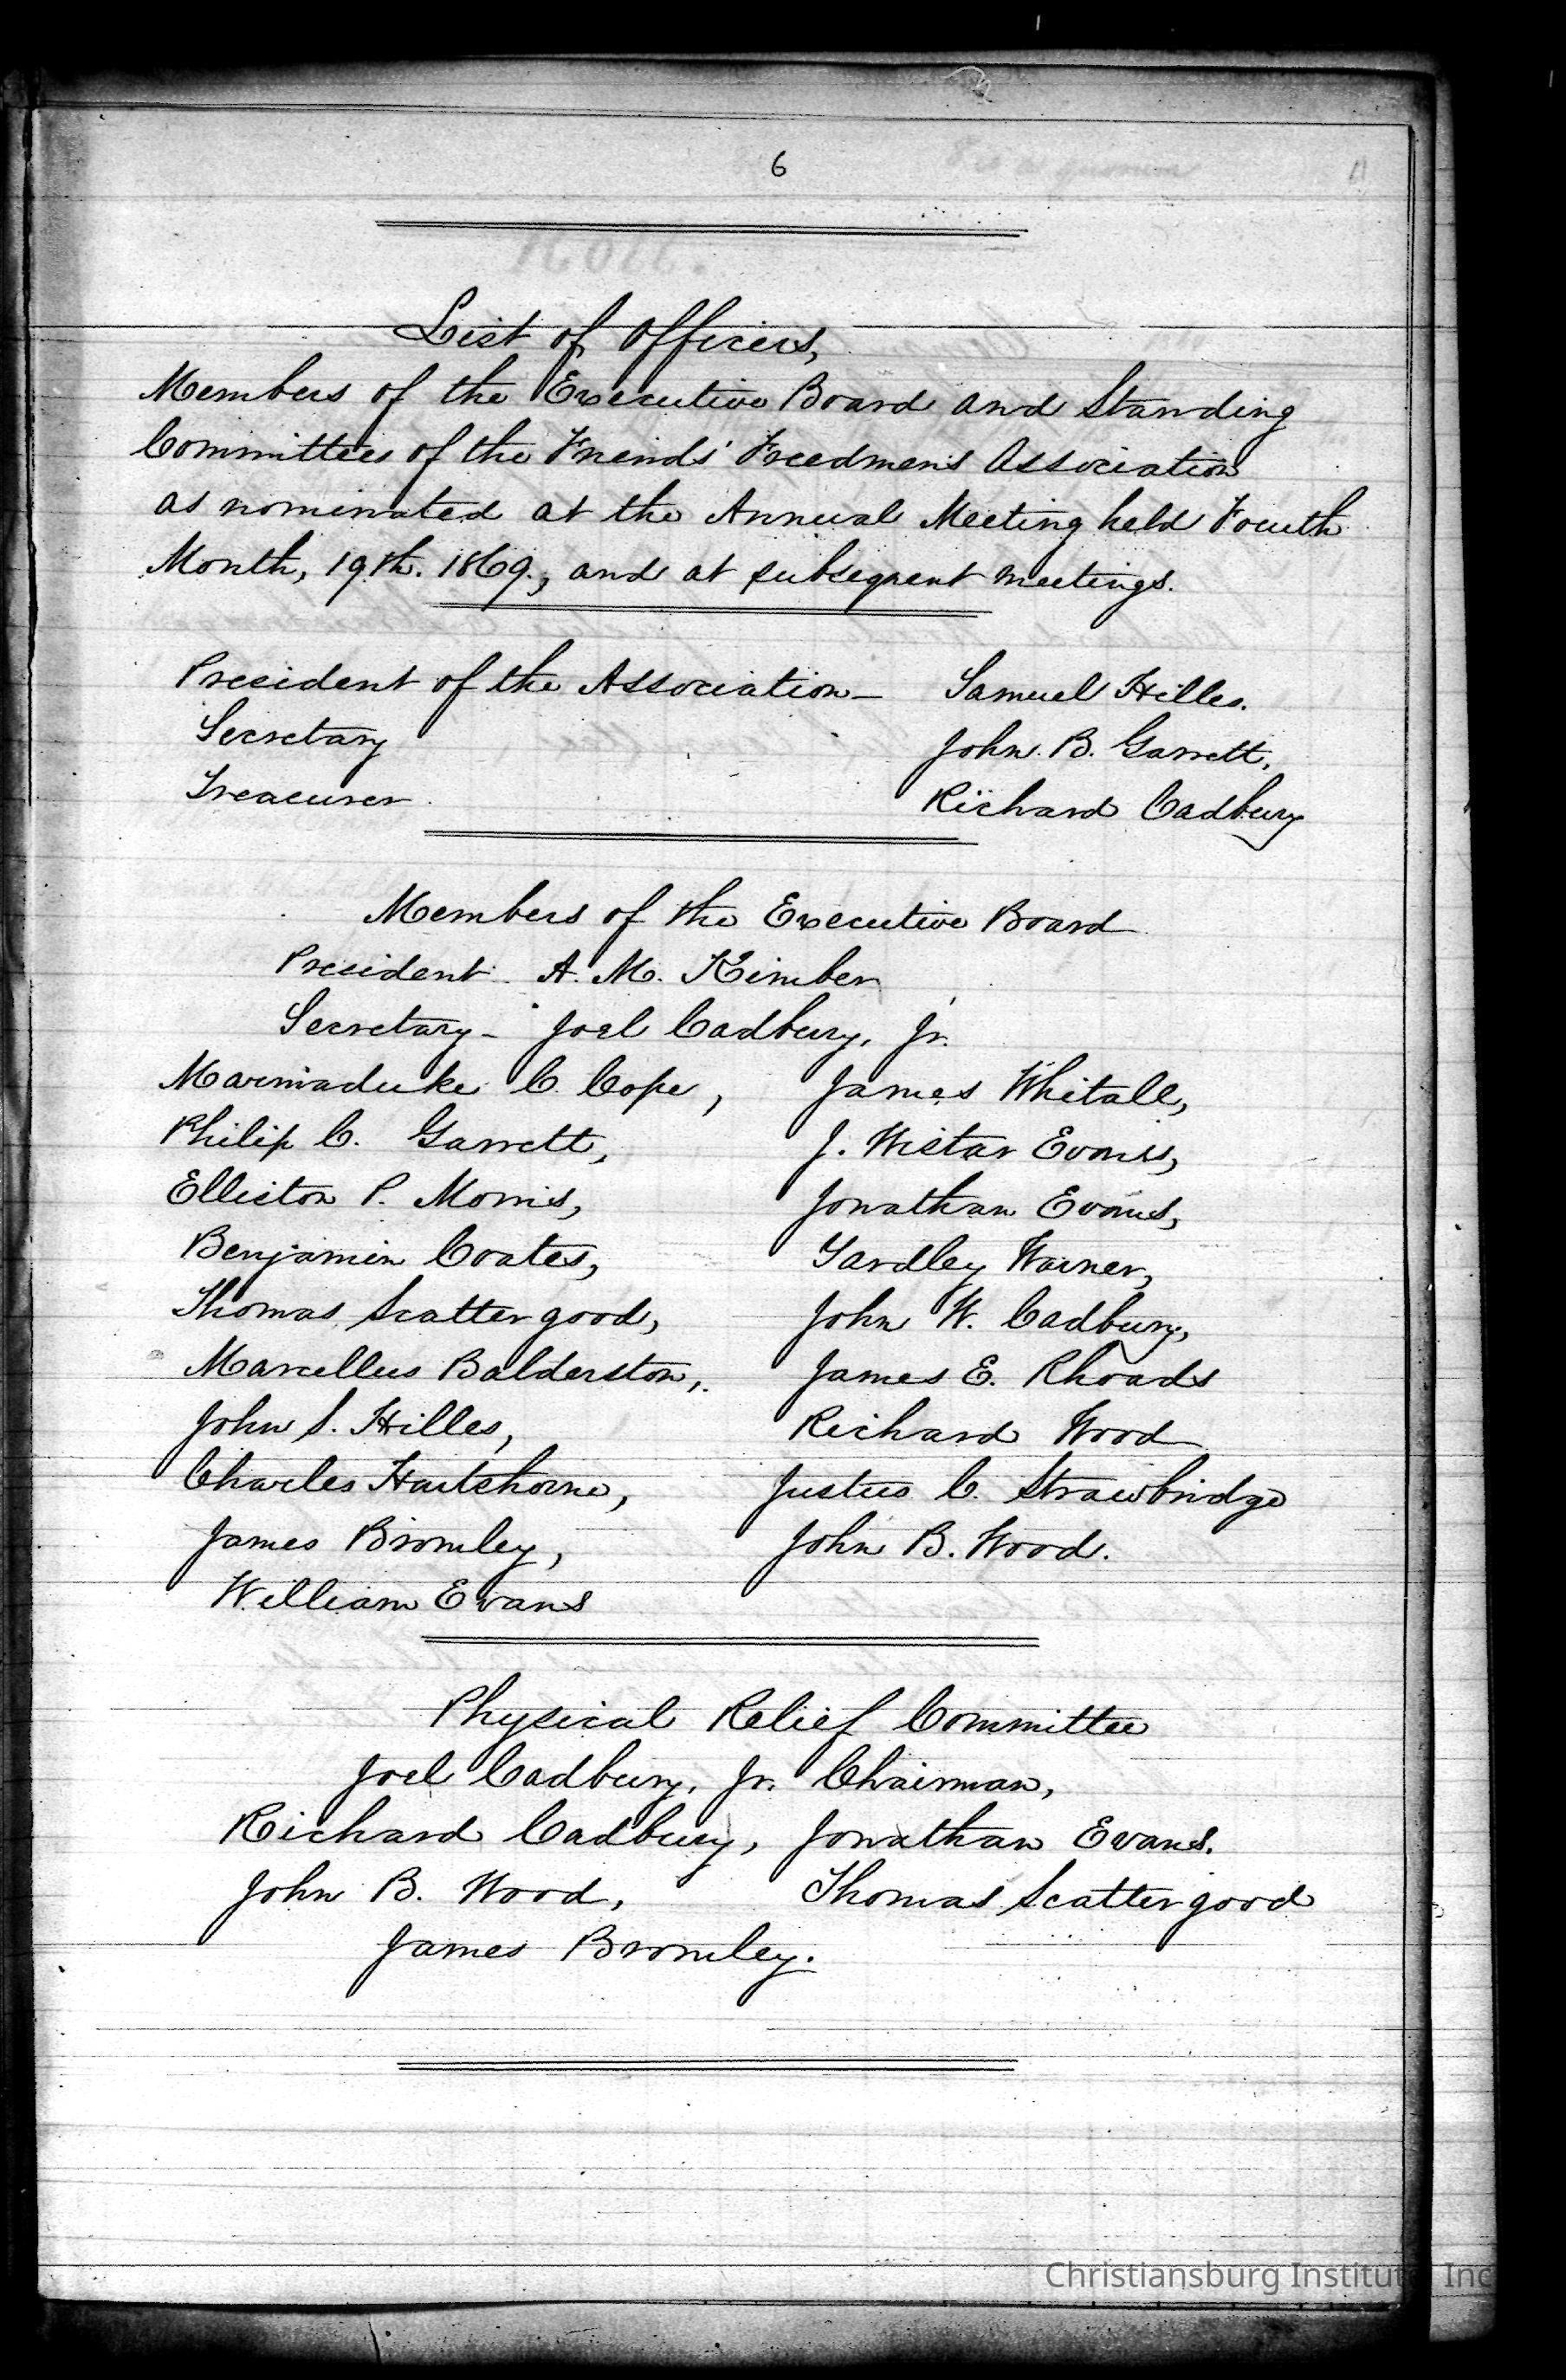 6
List of Officers,
Members of the Executive Board and Standing
Committees of the Friends' Freedmen's Association
as nominated at the Annual Meeting held Fourth
Month, 19th. 1869., and at subsequent meetings.
President of the Association — Samuel Hilles.
Secretary John. B. Garrett,
Treasurer Richard Cadbury
Members of the Executive Board
President A. M. Kimber
Secretary - Joel Cadbury, Jr.
Marmaduke C. Cope, James Whitall,
Philip C. Garrett, J. Wistar Evans,
Elliston P. Morris, Jonathan Evans,
Benjamin Coates, Yardley Warner,
Thomas Scattergood, John W. Cadbury,
Marcellus Balderston, James E. Rhoads
John S. Hilles, Richard Wood
Charles Hartshorne, Justus C. Strawbridge
James Bromley, John B. Wood.
William Evans
Physical Relief Committee
Joel Cadbury, Jr. Chairman,
Richard Cadbury, Jonathan Evans.
John B. Wood, Thomas Scattergood
James Bromley.
Christiansburg Institute, Inc